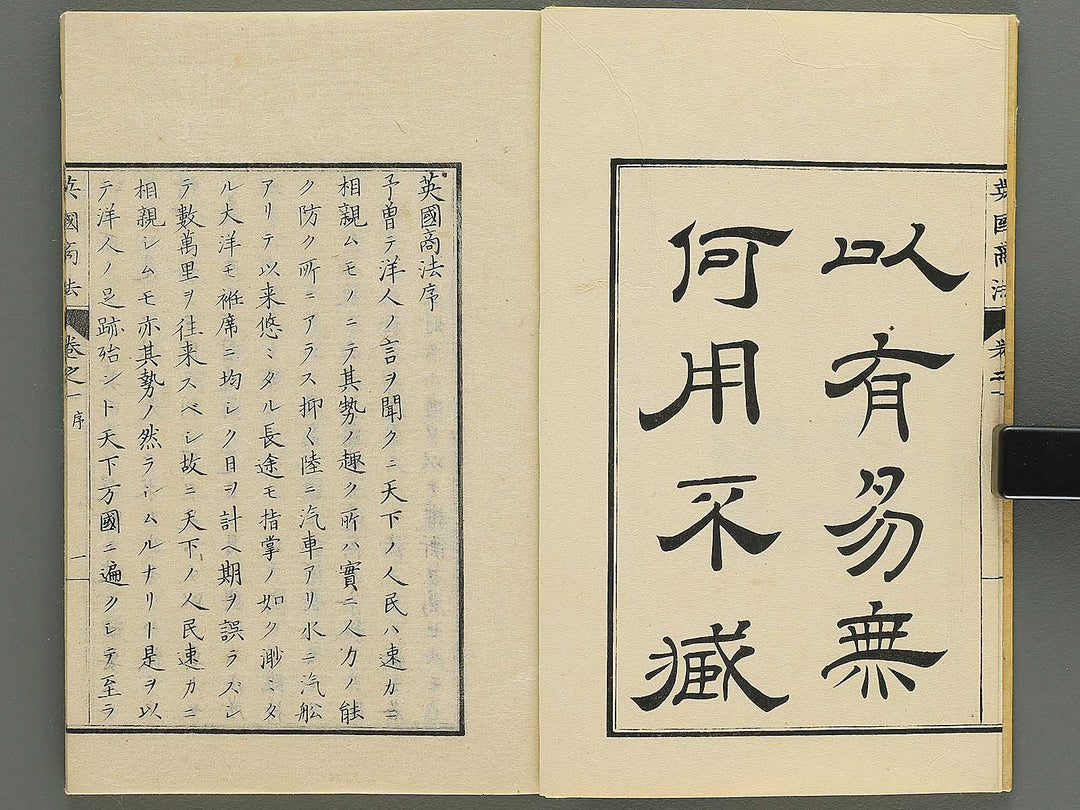 英國商法
卷之一
以有易無
何用不臧
英國商法序
予曽テ洋人ノ言ヲ聞クニ天下ノ人民ハ速カニ
相親ムモノニテ其勢ノ趣ク所ハ實ニ人力ノ能
ク防ク所ニアラス抑〻陸ニ汽車アリ水ニ汽舩
アリテ以来悠〻タル長途モ指掌ノ如ク渺〻タ
ル大洋モ袵席ニ均シク日ヲ計ヘ期ヲ誤ラズシ
テ數萬里ヲ往来スベシ故ニ天下ノ人民速カニ
相親シムモ亦其勢ノ然ラシムルナリト是ヲ以
テ洋人ノ足跡殆ント天下万國ニ遍クシテ至ラ
英國商法
卷之一
序
一